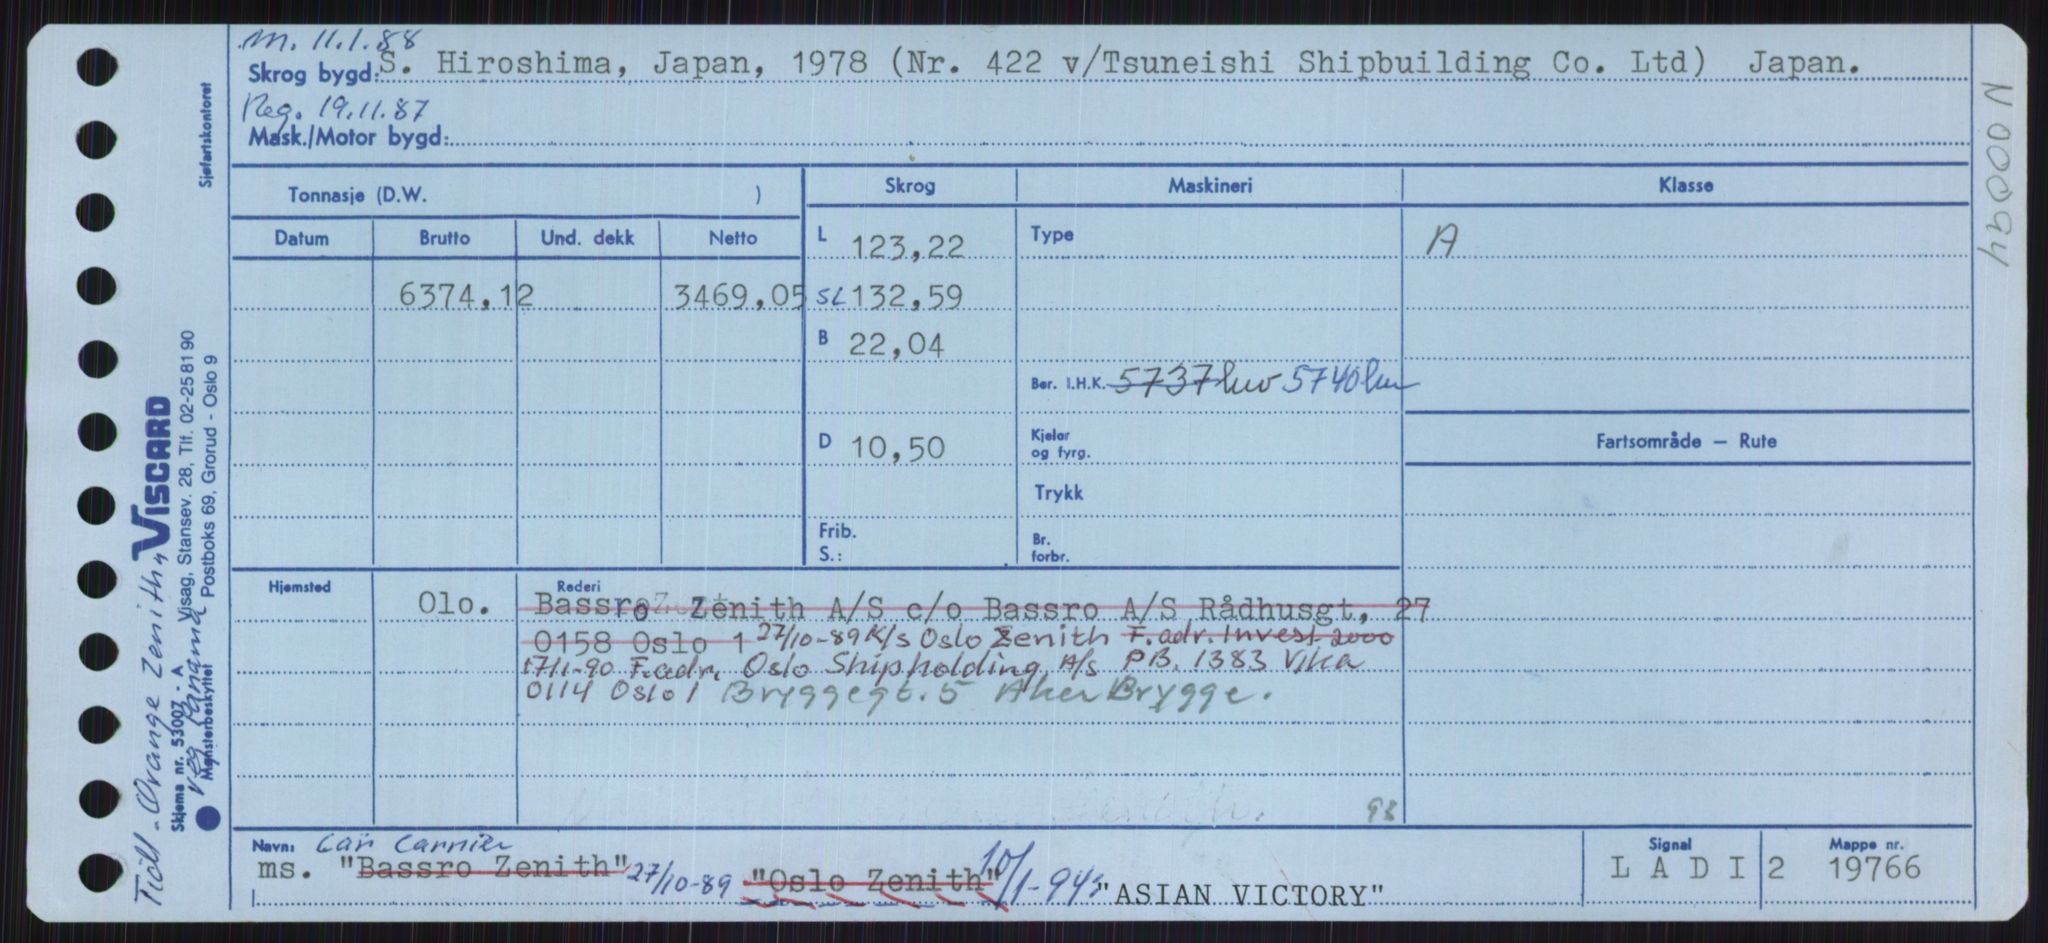 m. 11.1.88
Skrog bygd: S. Hiroshima, Japan, 1978 (Nr. 422 v/Tsuneishi Shipbuilding Co. Ltd) Japan.
Reg. 19.11.87
Mask./Motor bygd:
Sjøfartskontoret
N 00094
Tonnasje (D.W. )
Skrog
Maskineri
Klasse
Datum
Brutto
Und. dekk
Netto
L 123,22
Type
A
6374,12
3469,05
SL 132,59
B 22,04
Ber. I.H.K. 5737 kw 5740 kw
D 10,50
Kjeler
og fyrg.
Fartsområde – Rute
Trykk
Frib.
S.:
Br.
forbr.
Hjemsted
Olo.
Rederi
Bassro Zenith A/S c/o Bassro A/S Rådhusgt, 27
0158 Oslo 1 27/10-89 K/s Oslo Zenith F.adr. Invest 2000
17/1-90 F.adr. Oslo Shipholding A/s P.B. 1383 Vika
0114 Oslo 1 Bryggegt. 5 Aker Brygge.
98
Navn: Car Carrier
ms. "Bassro Zenith" 27/10-89 "Oslo Zenith" 10/1-94: "ASIAN VICTORY"
Signal
L A D I 2
Mappe nr.
19766
Tidl. "Orange Zenith"
reg Panama
VISCARD
Skjema nr. 53007 - A
Visag, Stansev. 28, Tlf. 02-25 81 90
Mønsterbeskyttet
Postboks 69, Grorud - Oslo 9